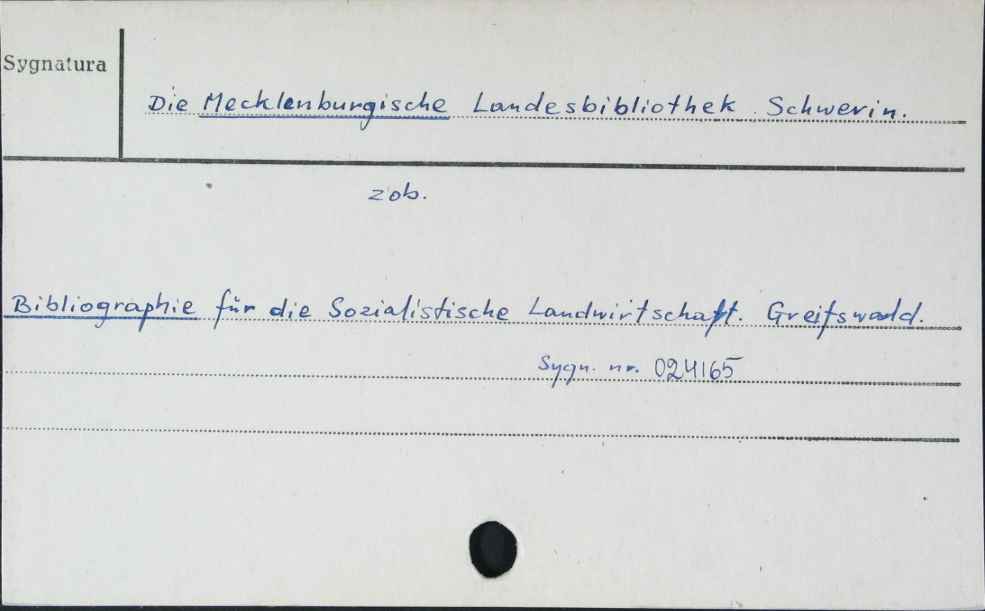 Sygnatura
Die Mecklenburgische Landesbibliothek Schwerin.
zob.
Bibliographie für die Sozialistische Landwirtschaft. Greifswald.
Sygn. nr. 024165